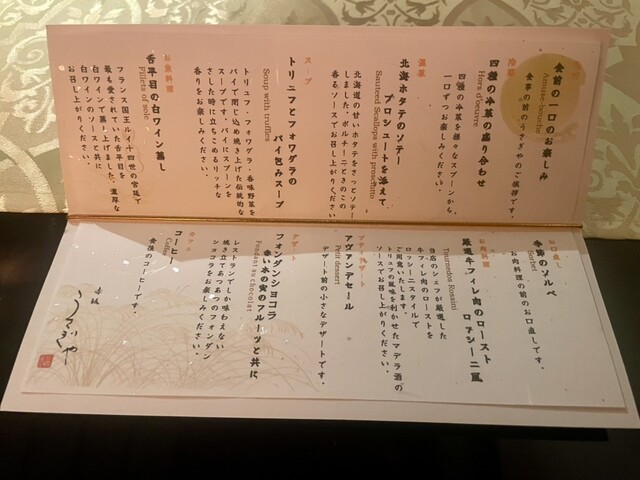 食前の一口のお楽しみ
Amuse-bouche
食事の前のうすぎやのご挨拶です。
冷菜
四種の冷菜の盛り合わせ
Hors d'oeuvre
四種の冷菜を様々なスプーンから、
一口ずつお楽しみください。
温菜
北海ホタテのソテー
プロシュートを添えて
Sauteed Scallops with prosciutto
北海道の甘いホタテをさっとソテー
しました。ポルチーニときのこの
香るソースでお召し上がりください。
スープ
トリュフとフォワグラの
パイ包みスープ
Soup with truffles
トリュフ・フォワグラ・香味野菜を
パイで閉じ込め焼き上げた伝統的な
スープです。パイにスプーンを
さした時に立ちこめるリッチな
香りをお楽しみください。
お魚料理
舌平目の白ワイン蒸し
Fillets of sole
フランス国王ルイ十四世の宮廷で
最も愛されていた舌平目を
白ワインで蒸し上げました。濃厚な
白ワインのソースと共に
お召し上がりください。
お口直し
季節のソルベ
Sorbet
お肉料理の前のお口直しです。
お肉料理
厳選牛フィレ肉のロースト
ロッシーニ風
Tournedos Rossini
当店のシェフが厳選した
牛フィレ肉のローストを
ロッシーニスタイルで
ご用意いたします。
トリュフの風味を利かせたマデラ酒の
ソースでお召し上がりください。
プティデザート
アヴァンデセール
Petit dessert
デザート前の小さなデザートです。
デザート
フォンダンショコラ
赤い木の実のフルーツと共に
Fondant au chocolat
レストランでしか味わえない
焼き立てあつあつのフォンダン
ショコラをお楽しみください。
カフェ
コーヒー
Coffee
食後のコーヒーです。
赤坂